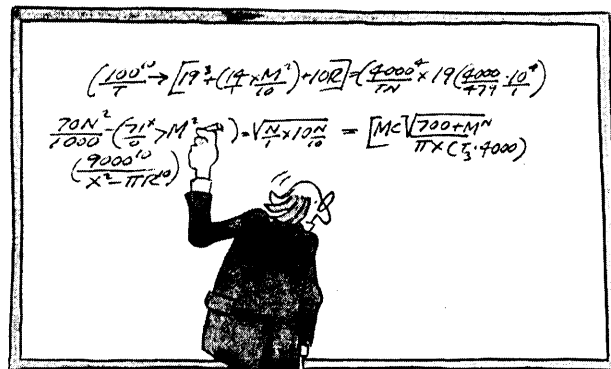 (100¹⁰/T → [19³+(14×M²/10)+10R]=(4000⁴/TN × 19(4000/474 · 10⁴/1)
70N²/1000 -(71ˣ/0 > M² )=√N/1×10N/10 = [MC√700+Mᴺ/π×(T₃·4000)
(9000¹⁰/X²-πR¹⁰)